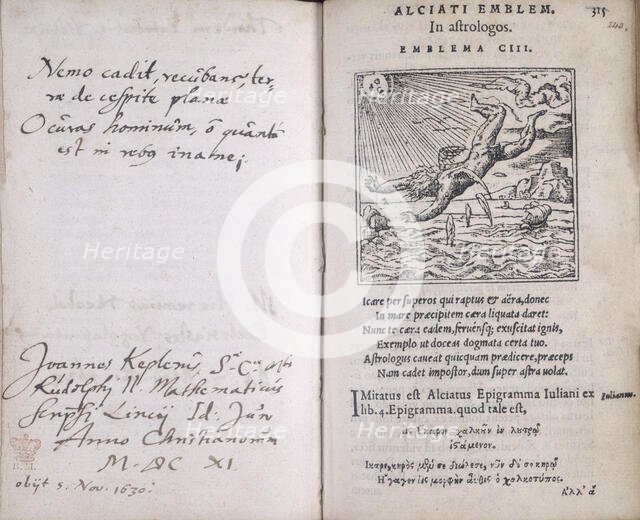 Nemo cadit, recubans ter-
ræ de cespite planæ
O curas hominum, ô quantū
est in rebꝯ inane;
Joannes Keplerus, Sᵃ. Cᵃ. Mᵗⁱˢ
Rudolphi II. Mathematicus
scripsi Lincij Id. Jun
Anno Christianorum
M. DC XI.
B. M.
obijt 5. Nov. 1630.
ALCIATI EMBLEM. 315
242.
In astrologos.
EMBLEMA CIII.
Icare per superos qui raptus & aëra, donec
In mare præcipitem cæra liquata daret:
Nunc te cæra eadem, feruēnsq; exuscitat ignis,
Exemplo ut doceas dogmata certa tuo.
Astrologus caueat quicquam prædicere, præceps
Nam cadet impostor, dum super astra uolat.
IMitatus est Alciatus Epigramma Iuliani ex Iulianus.
lib. 4. Epigramma. quod tale est,
Ἴκαρε, κηρὸς
Ἀλλ᾽ ἂ
Heritage
Heritage
Heritage
Heritage
Heritage
Heritage